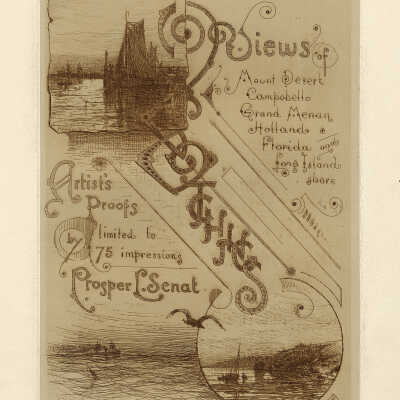 Etchings
Views of
Mount Desert
Campobello
Grand Menan
Holland
Florida and
Long Island
shore
Artist's
Proofs
limited to
75 impressions
by
Prosper L. Senat